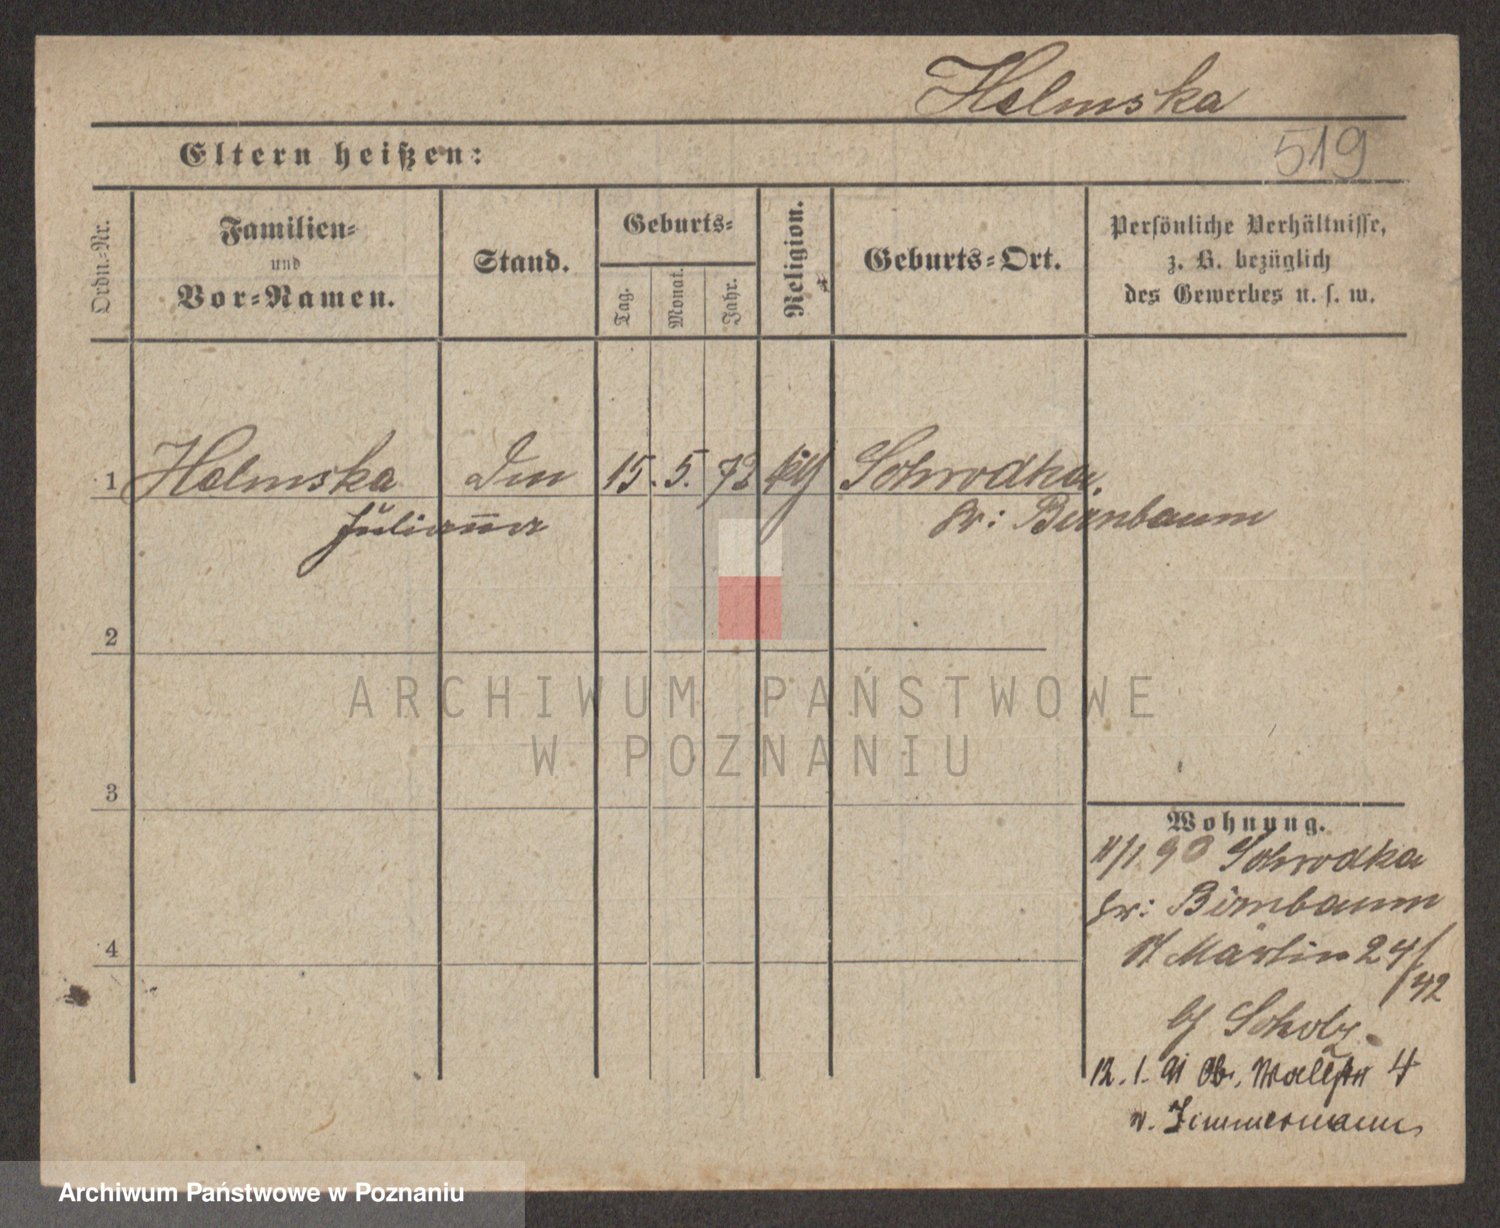 Helmska
Eltern heißen:
519
Ordn.-Nr.
Familien-
und
Vor-Namen.
Stand.
Geburts-
Tag.
Monat.
Jahr.
Religion.
Geburts-Ort.
Persönliche Verhältnisse,
z. B. bezüglich
des Gewerbes u. s. w.
1 Helmska 15. 5. 72 Schrodka,
Julianna Kr: Birnbaum
2
ARCHIWUM PAŃSTWOWE
W POZNANIU
3
Wohnung.
11/1 90 Schrodka
Kr: Birnbaum
St Martin 24/
42
4
bj Scholz
12. 1. 91 Ob. Wallstr 4
v. Zimmermann
Archiwum Państwowe w Poznaniu